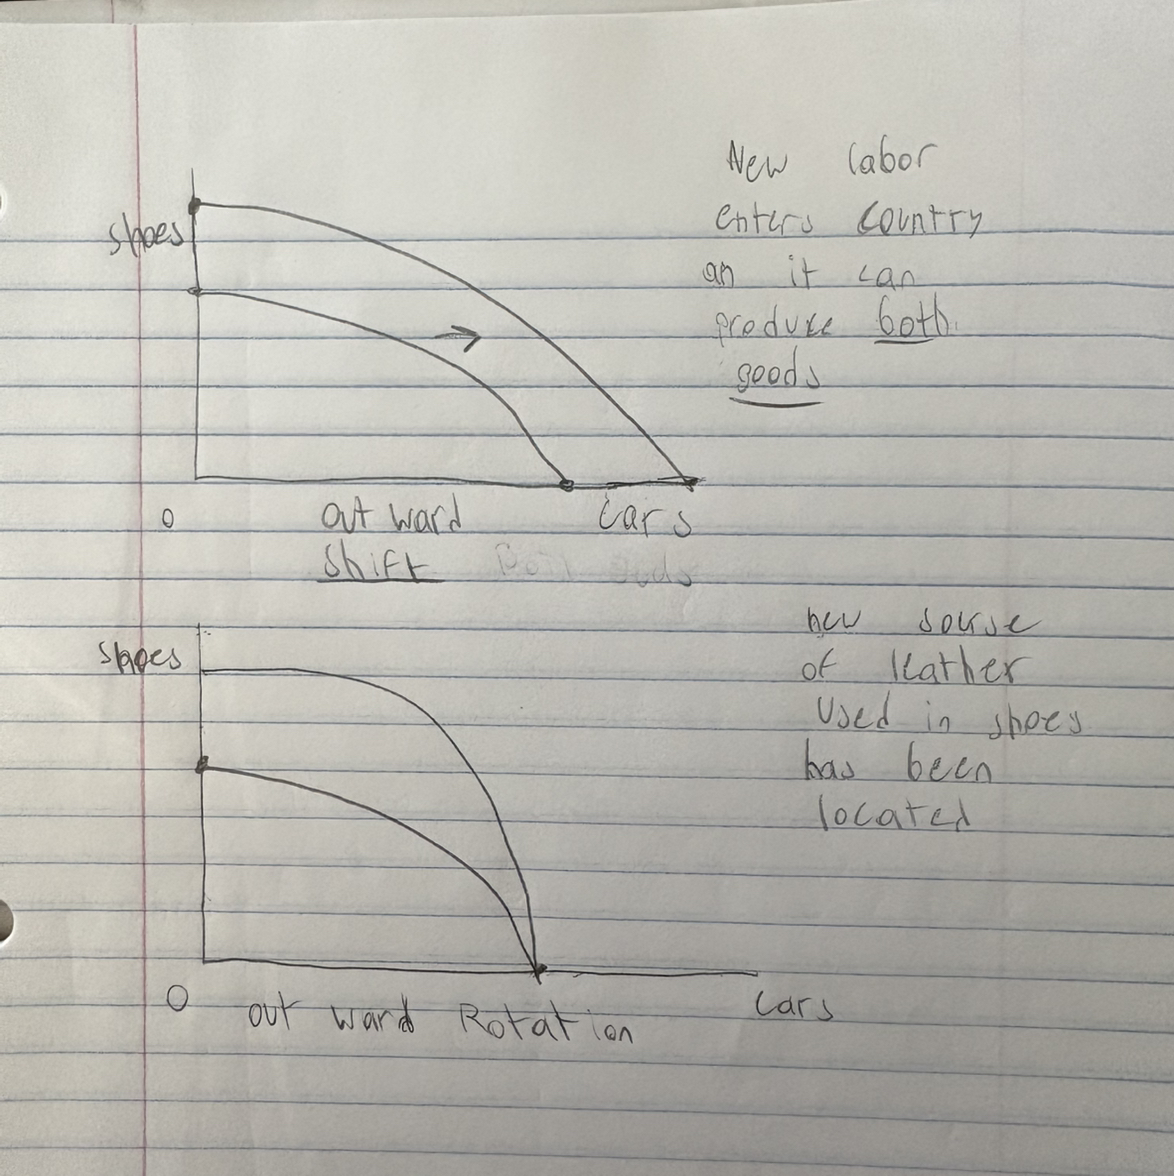 New labor
enters country
an it can
produce both
goods
shoes
0
out ward
shift
cars
new sourse
of leather
used in shoes
has been
located
shoes
0
out ward Rotation
cars